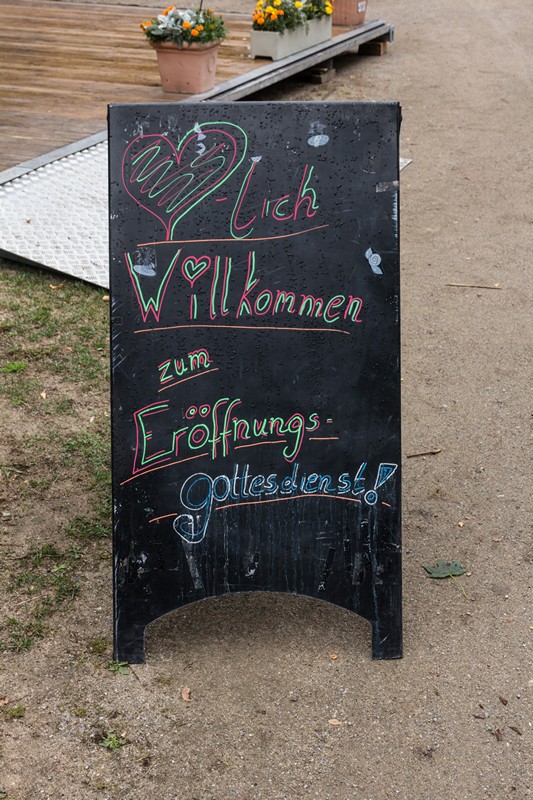 -lich
Willkommen
zum
Eröffnungs-
gottesdienst!